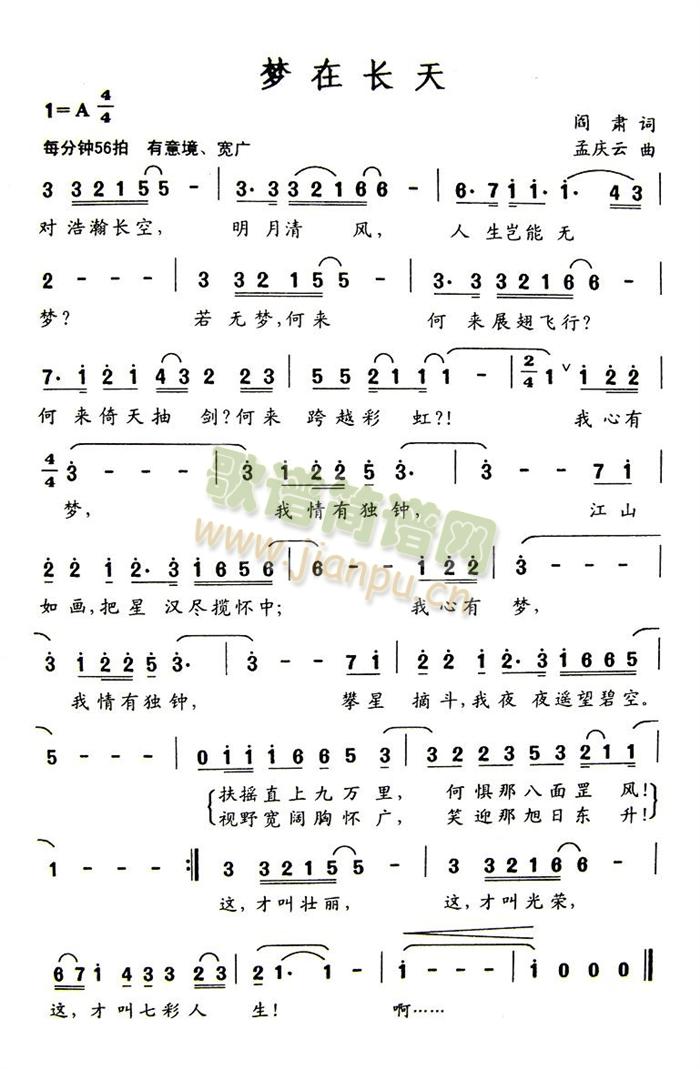 梦在长天
1=A 4/4
阎肃词
每分钟56拍 有意境、宽广
孟庆云曲
3 3 2 1 5 5 - | 3· 3 3 2 1 6 6 - | 6· 7 1 1· 1· 4 3 |
对浩瀚长空， 明月清风， 人生岂能无
2 - - - | 3 3 2 1 5 5 - | 3· 3 3 2 1 6 6 - |
梦？ 若无梦，何来 何来展翅飞行？
7· 1 2 1 4 3 2 2 3 | 5 5 2 1 1 1 - | 2/4 1 ∨ 1 2 2 |
何来倚天抽剑？何来跨越彩虹？！ 我心有
4/4 3 - - - | 3 1 2 2 5 3· | 3 - - 7 1 |
梦， 我情有独钟， 江山
2 2 1 2· 3 1 6 5 6 | 6 - - 1 2 2 | 3 - - - |
如画，把星汉尽揽怀中； 我心有梦，
3 1 2 2 5 3· | 3 - - 7 1 | 2 2 1 2· 3 1 6 6 5 |
我情有独钟， 攀星摘斗，我夜夜遥望碧空。
5 - - - | 0 1 1 1 6 6 5 3 | 3 2 2 3 5 3 2 1 1 |
扶摇直上九万里， 何惧那八面罡风！
视野宽阔胸怀广， 笑迎那旭日东升！
1 - - - :| 3 3 2 1 5 5 - | 3 3 2 1 6 6 - |
这，才叫壮丽， 这，才叫光荣，
6 7 1 4 3 3 2 3 | 2 1· 1 - | 1 - - - | 1 0 0 0 ‖
这，才叫七彩人生！ 啊……
歌谱简谱网
www.jianpu.cn